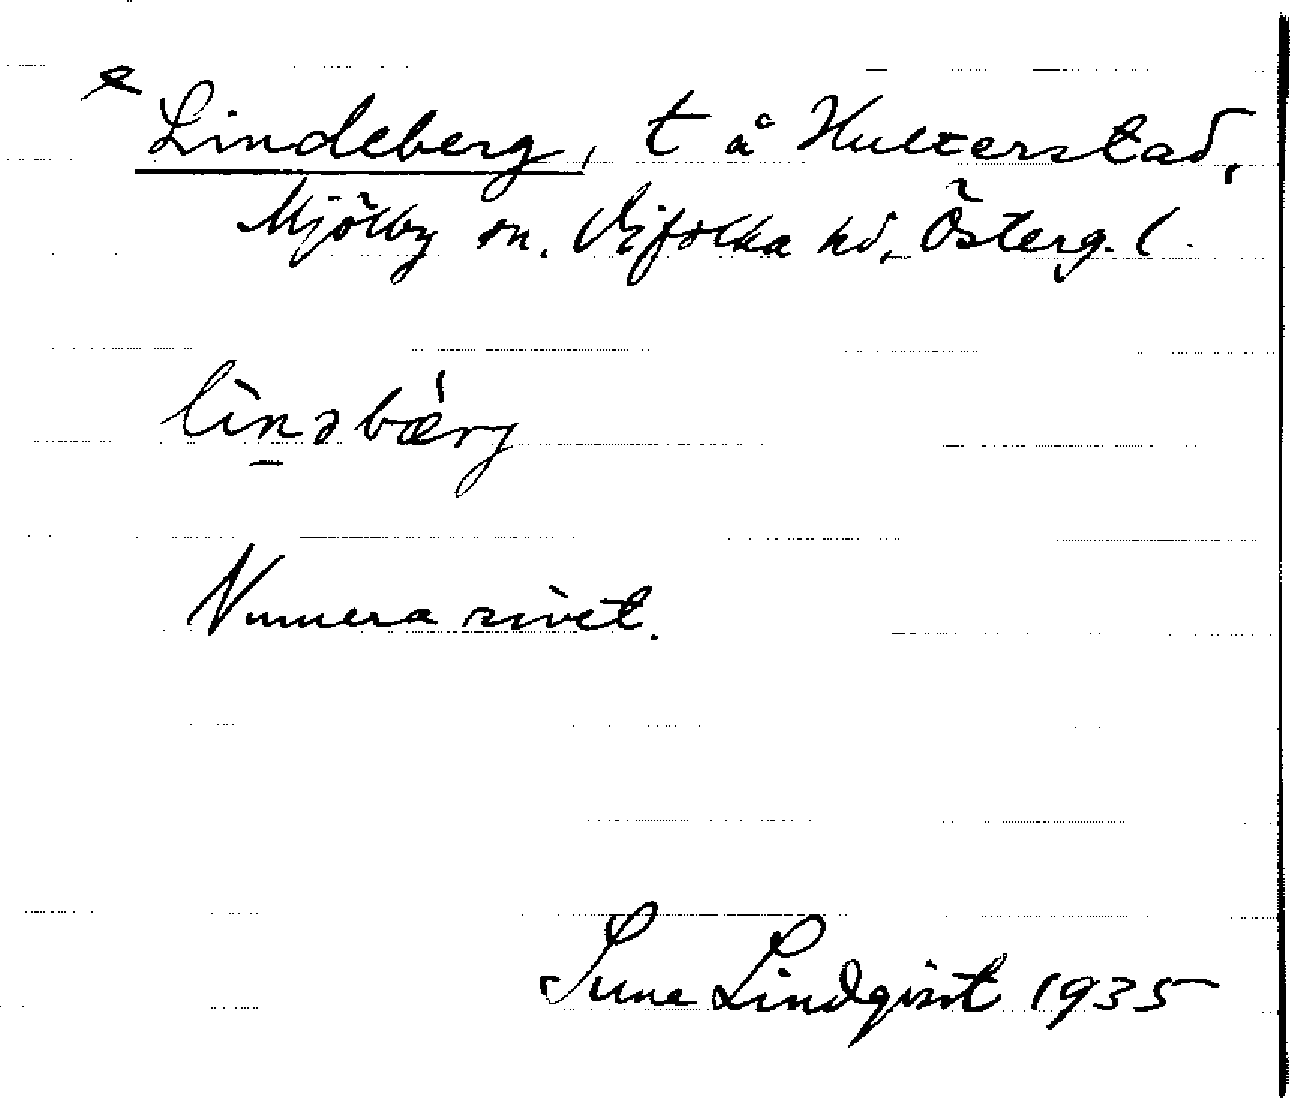 Lindeberg, t å Hulterstad,
Mjölby sn. Vifolka hd, Österg. l.
lìnəbǽrg
Numera rivet.
Sune Lindqvist 1935